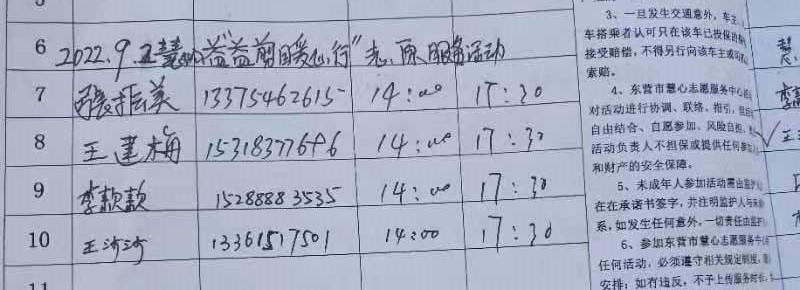 6 2022.9. 益"益剪暖心行"志愿服务活动
7 张振美 13375462615 14:00 17:30
8 王建梅 15318377696 14:00 17:30
9 李款款 15288883535 14:00 17:30
10 王沙沙 13361517501 14:00 17:30
11
3、一旦发生交通意外，车主
车搭乘者认可只在该车已投保
接受赔偿，不得另行向该车主或
索赔。
4、东营市慧心志愿服务中心
对活动进行协调、联络、指引，
自由结合、自愿参加、风险自担，
活动负责人不担保或提供任何参
和财产的安全保障。
5、未成年人参加活动需出
在在承诺书签字，并注明监护人与
系，如发生任何意外，一切责任由监护
6、参加东营市慧心志愿服务中心
任何活动，必须遵守相关规定制度，
安排；如有违反，不予上传服务时长，